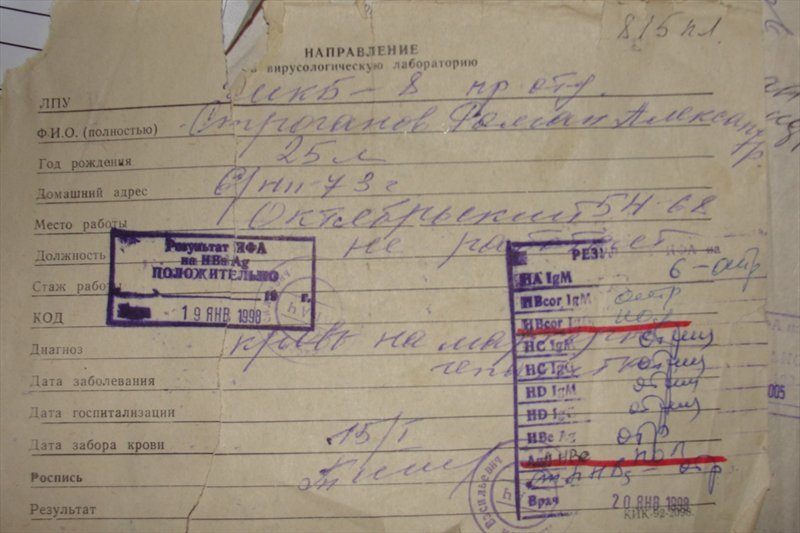 815 пл.
НАПРАВЛЕНИЕ
в вирусологическую лабораторию
ЛПУ МКБ - 8 пр. отд.
Ф.И.О. (полностью) Строганов Роман Александр
Год рождения 25 л
Домашний адрес 73 г
Место работы Октябрьский 54-68
Должность не работает
Стаж работы
КОД
Диагноз кровь на маркеры
гепатитов
Дата заболевания
Дата госпитализации
Дата забора крови 15/I
Роспись
Результат
Результат ИФА
на HBs Ag
ПОЛОЖИТЕЛЬНО
19 г.
19 ЯНВ 1998
РЕЗУЛ ИФА на
HA IgM 6 - отр
HBcor IgM отр
HBcor IgG пол
HC IgM отриц
HC IgG отриц
HD IgM отриц
HD IgG отриц
HBe Ag отр
Ант HBe пол
ант HBs - отр
Врач 20 ЯНВ 1998
КИК-52-2098.
Васильевич
005